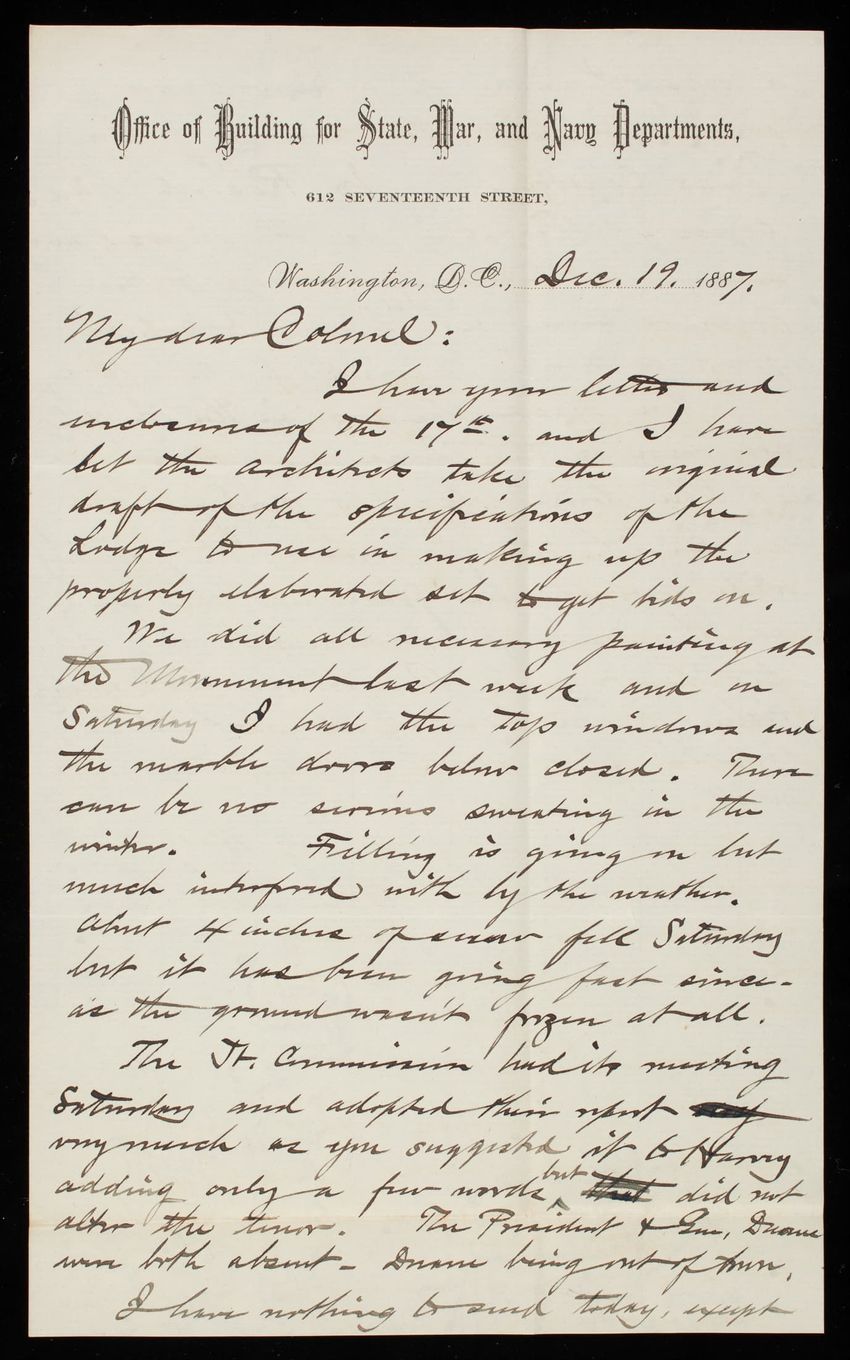 Office of Building for State, War, and Navy Departments,
612 SEVENTEENTH STREET,
Washington, D.C., Dec. 19. 1887.
My dear Colonel:
I have your letter and
inclosures of the 17th. and I have
let the architects take the original
draft of the specifications of the
Lodge to use in making up the
properly elaborated set to get bids on.
We did all necessary painting at
the Monument last week and on
Saturday I had the top windows and
the marble doors below closed. There
can be no serious sweating in the
winter. Filling is going on but
much interfered with by the weather.
About 4 inches of snow fell Saturday
but it has been going fast since -
as the ground wasn't frozen at all.
The Jt. Commission had its meeting
Saturday and adopted their report
very much as you suggested it to Harvey
adding only a few words but did not
alter the tenor. The President & Gen. Duane
were both absent - Duane being out of town.
I have nothing to send today, except